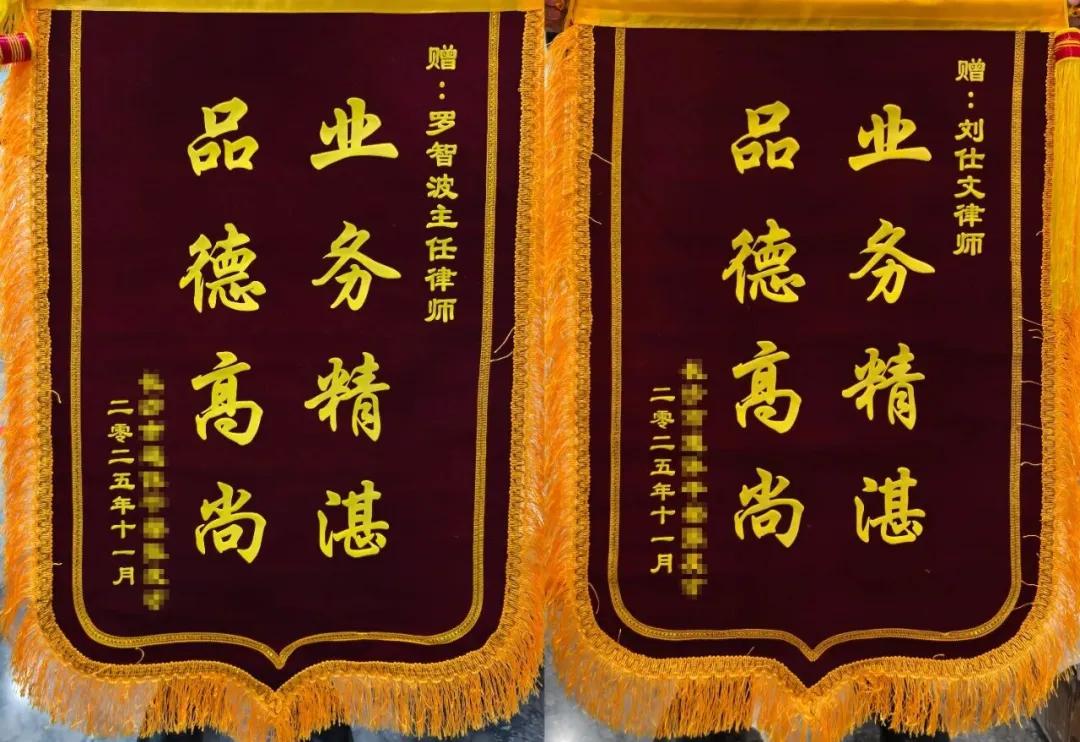 赠：罗智波主任律师
业务精湛
品德高尚
二零二五年十一月
赠：刘仕文律师
业务精湛
品德高尚
二零二五年十一月